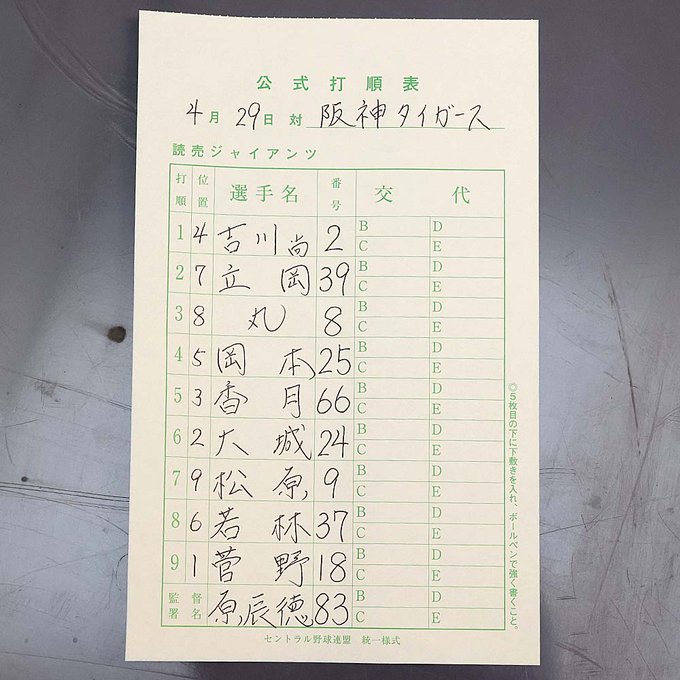 公式打順表
4月29日 対 阪神タイガース
読売ジャイアンツ
打順 位置 選手名 番号 交代
1 4 吉川尚 2 B D C E
2 7 立岡 39 B D C E
3 8 丸 8 B D C E
4 5 岡本 25 B D C E
5 3 香月 66 B D C E
6 2 大城 24 B D C E
7 9 松原 9 B D C E
8 6 若林 37 B D C E
9 1 菅野 18 B D C E
監督署名 原辰徳 83 B D C E
◎5枚目の下に下敷きを入れ、ボールペンで強く書くこと。
セントラル野球連盟 統一様式